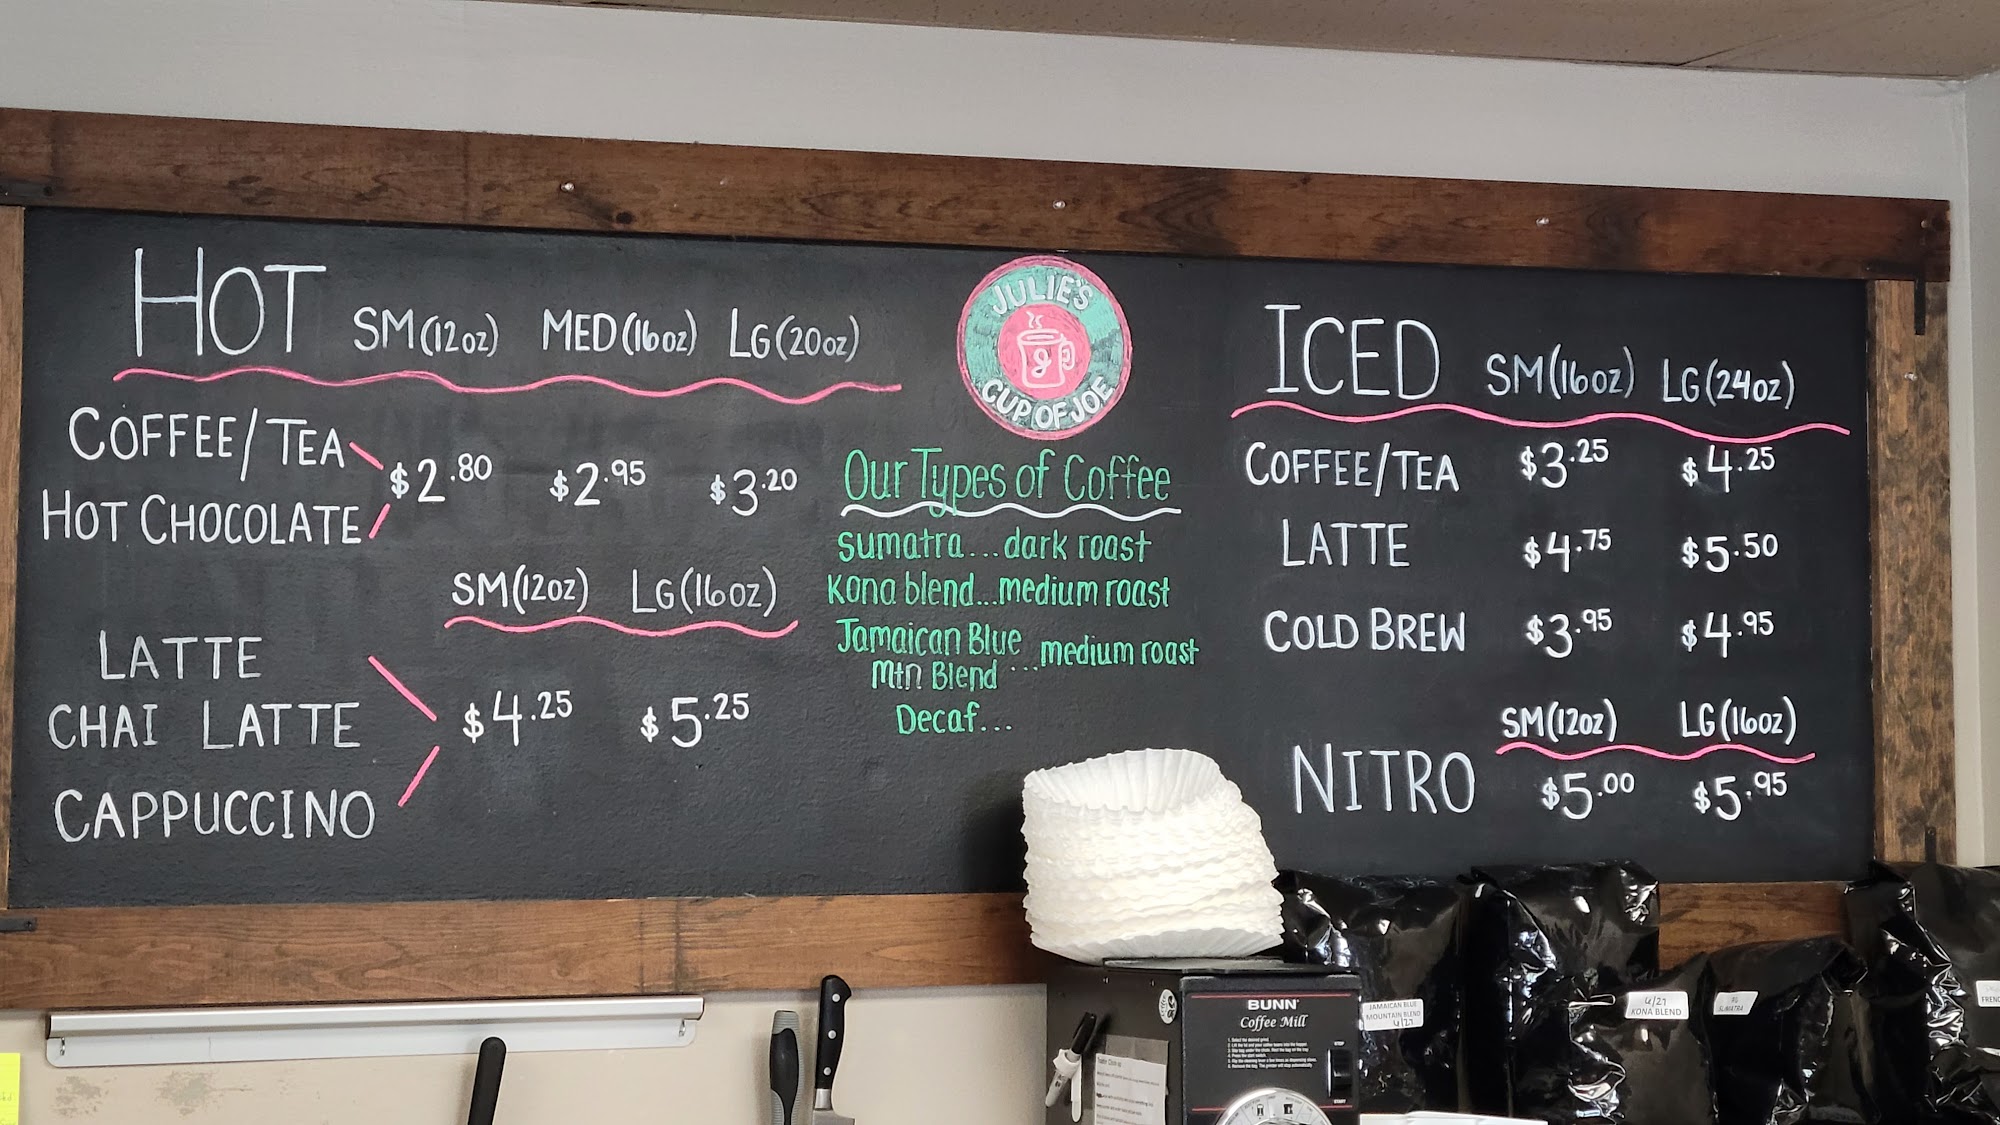 HOT SM(12oz) MED(16oz) LG(20oz)
COFFEE/TEA
HOT CHOCOLATE
$2.80 $2.95 $3.20
SM(12oz) LG(16oz)
LATTE
CHAI LATTE
CAPPUCCINO
$4.25 $5.25
JULIE'S
CUP OF JOE
Our Types of Coffee
Sumatra...dark roast
Kona blend...medium roast
Jamaican Blue
Mtn Blend ...medium roast
Decaf...
ICED SM(16oz) LG(24oz)
COFFEE/TEA $3.25 $4.25
LATTE $4.75 $5.50
COLD BREW $3.95 $4.95
SM(12oz) LG(16oz)
NITRO $5.00 $5.95
BUNN
Coffee Mill
STOP
START
JAMAICAN BLUE
MOUNTAIN BLEND
6/27
6/27
KONA BLEND
SUMATRA